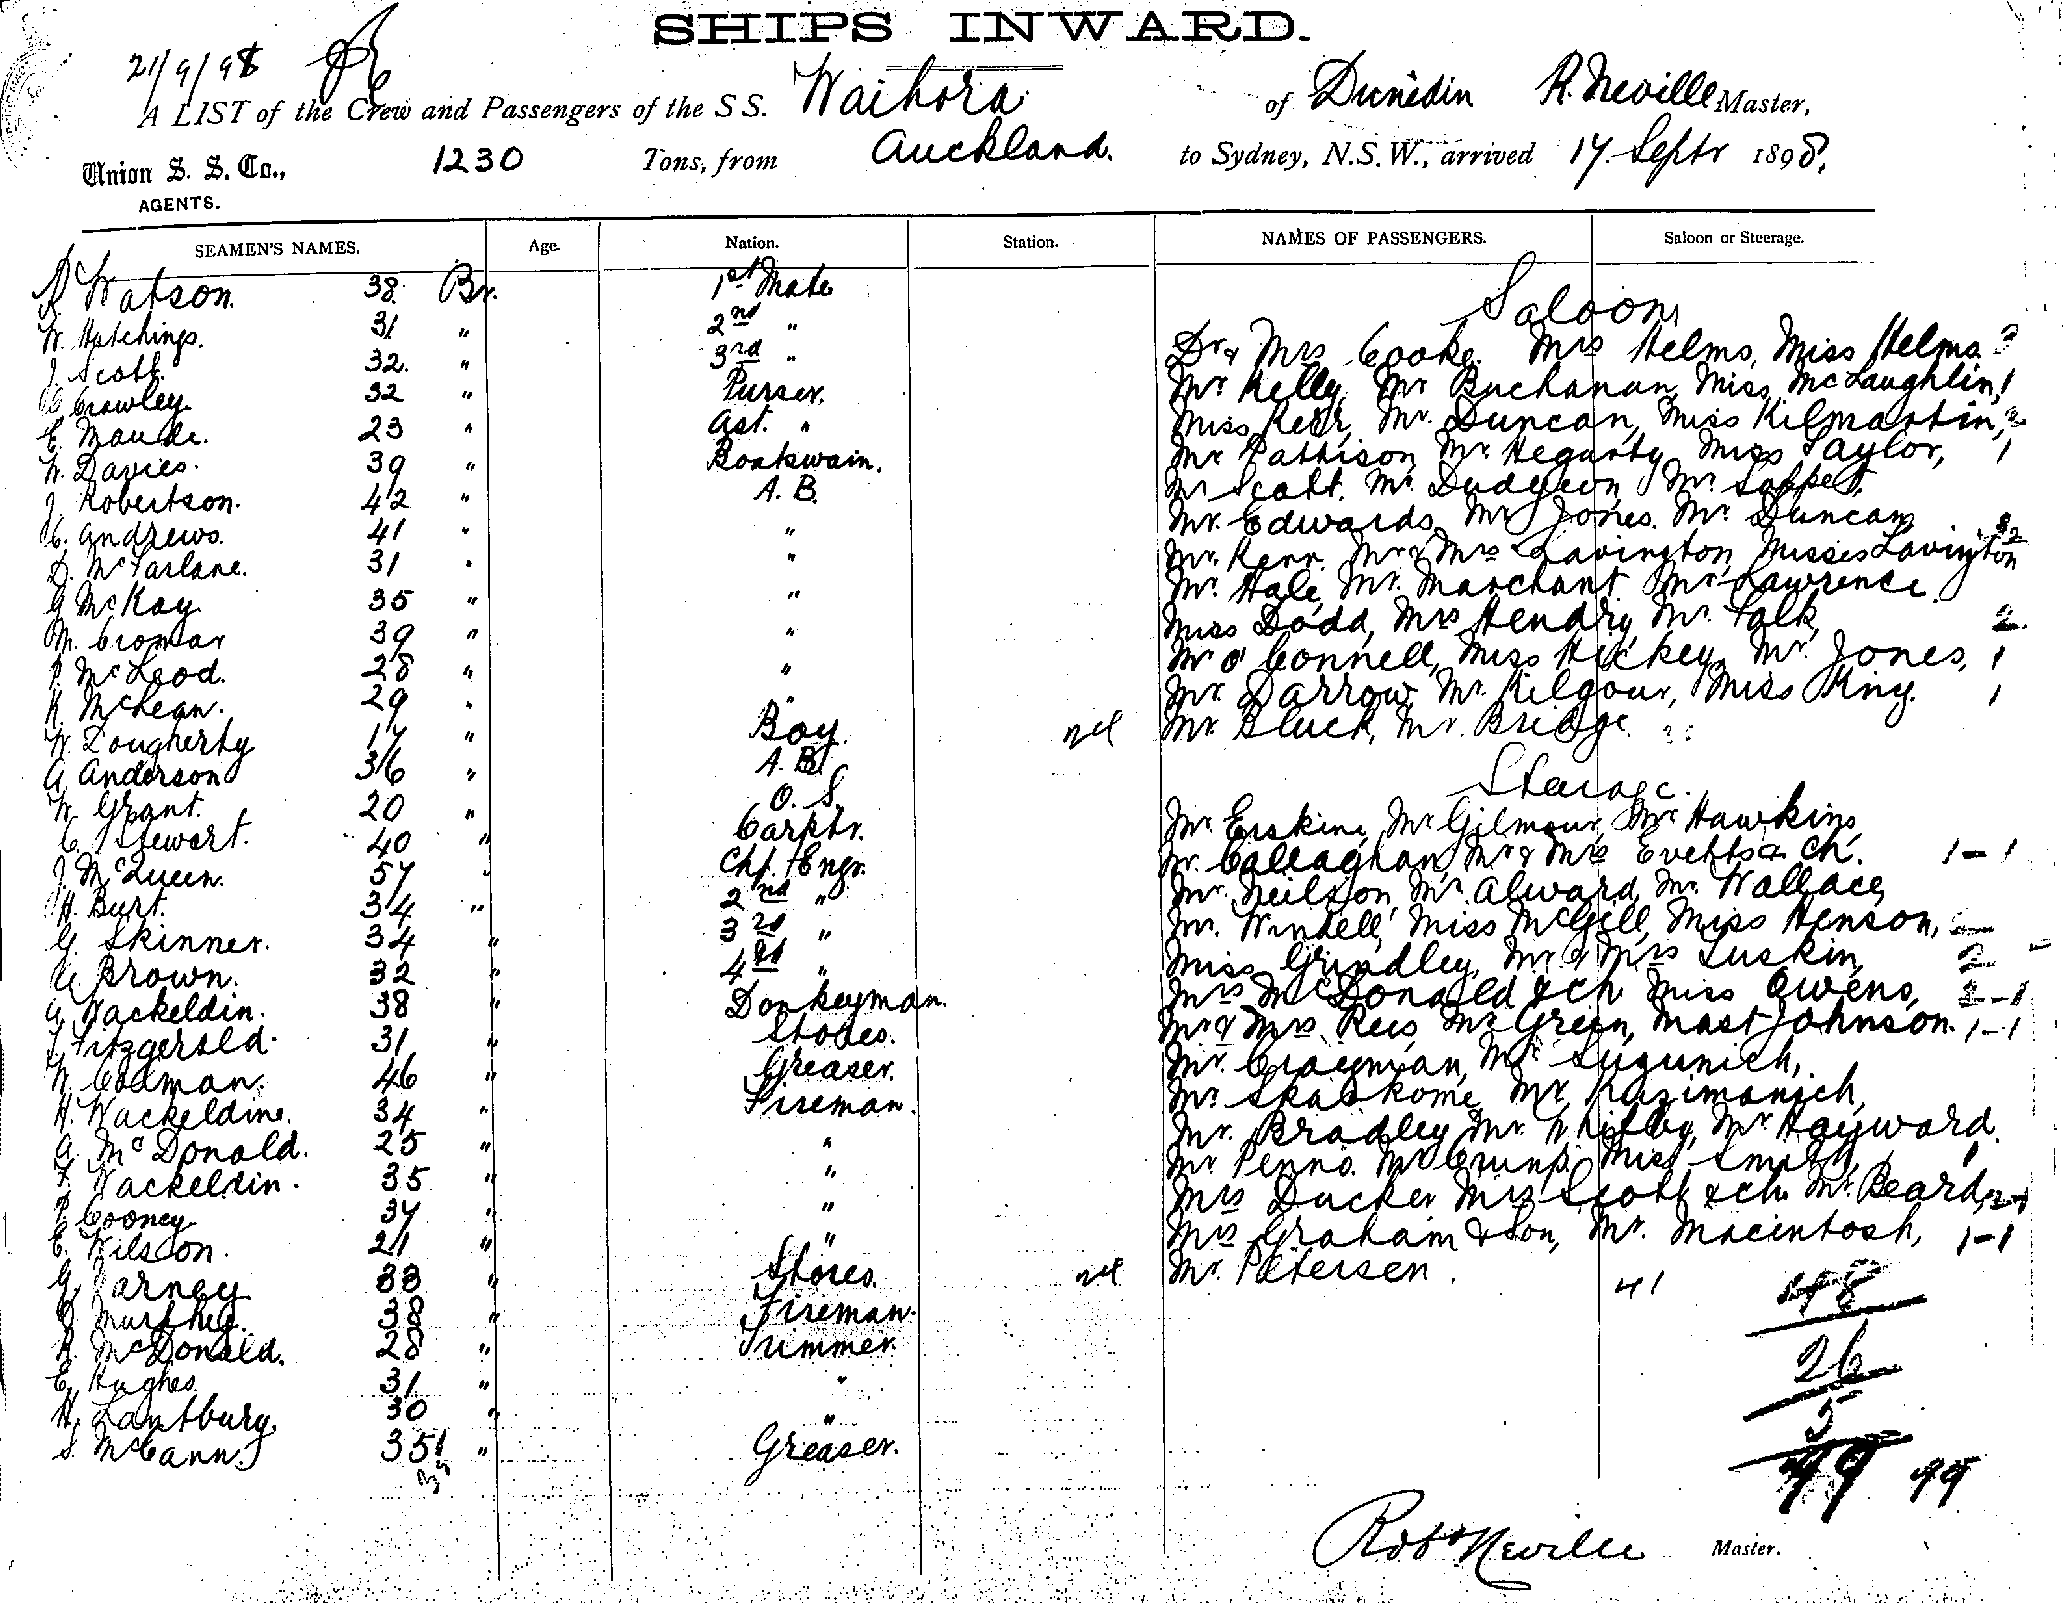 SHIPS INWARD.
21/9/98
A LIST of the Crew and Passengers of the S S. Waihora of Dunedin R. Neville Master,
Union S. S. Co., 1230 Tons, from Auckland. to Sydney, N.S.W., arrived 17 Septr 1898.
AGENTS.
SEAMEN'S NAMES. Age. Nation. Station. NAMES OF PASSENGERS. Saloon or Steerage.
Watson. 38 Br. 1st Mate
W. Hutchings. 31 " 2nd "
J. Scott. 32. " 3rd "
C. Crowley 32 " Purser.
E. Maude. 23 " Ast. "
W. Davies. 39 " Boatswain.
J. Robertson. 42 " A. B.
C. Andrews. 41 " "
D. McFarlane. 31 " "
G McKay 35 " "
M. Cromar 39 " "
P. McLeod. 28 " "
K. McLean. 29 " "
W. Dougherty 17 " Boy.
A. Anderson 36 " A. B.
W. Grant. 20 " O. S.
C. Stewart. 40 " Carptr.
J. McQueen. 57 " Chf. Engr.
H. Burt. 34 " 2nd "
G. Skinner. 34 " 3rd "
Brown. 32 " 4th "
G. Wackeldin. 38 " Donkeyman.
Fitzgerald. 31 " Stores.
W. Coaman. 46 " Greaser.
H. Wackeldine. 34 " Fireman.
A. McDonald. 25 " "
F. Wackeldin. 35 " "
P. Cooney 37 " "
E. Wilson. 21 " "
G. Varney 33 " Stores.
Murphy. 38 " Fireman.
R. McDonald. 28 " Trimmer.
E. Hughes 31 " "
H. Lantbury. 30 " "
S. McCann. 35 " Greaser.
Saloon
Dr & Mrs Cooke. Mrs Helms, Miss Helms. 3
Mr Kelly, Mr Buchanan, Miss McLaughlin, 1
Miss Kerr, Mr. Duncan, Miss Kilmartin, 2
Mr Pattison, Mr Hegarty, Miss Taylor, 1
Mr Scott. Mr. Dudgeon, Mr. Soppet,
Mr. Edwards, Mr Jones. Mr. Duncan
Mr. Kerr. Mr & Mrs Lavington, Misses Lavington
Mr. Hale, Mr. Marchant. Mr Lawrence.
Miss Dodd, Mrs Hendry, Mr. Falk, 2.
Mr O'Connell, Miss Hickey, Mr. Jones, 1
Mr. Darrow, Mr. Kilgour, Miss King. 1
Mr. Bluck, Mr. Bridge.
Steerage.
Mr. Erskine, Mr Gilmour, Mr Hawkins,
Mr. Callaghan, Mr & Mrs Evetts & ch. 1-1
Mr. Neilson, Mr. Alward, Mr. Wallace,
Mr. Windell, Miss McGill, Miss Henson, 2
Miss Grindley, Mr & Mrs Luskin, 2
Mrs McDonald & ch Miss Owens, 2-1
Mr & Mrs Rees, Mr Green, Mast Johnson. 1-1
Mr. Mr
Mr. Skaskome, Mr.
Mr. Bradley, Mr. Whitby, Mr Hayward.
Mr Penno. Mr Crump. Miss Smith, 1
Mrs Ducker Mrs Scott & ch. Mr. Beard, 2-1
Mrs Graham & Son, Mr. Macintosh, 1-1
Mr. Petersen. 41
26
5
99 99
Robt Neville Master.